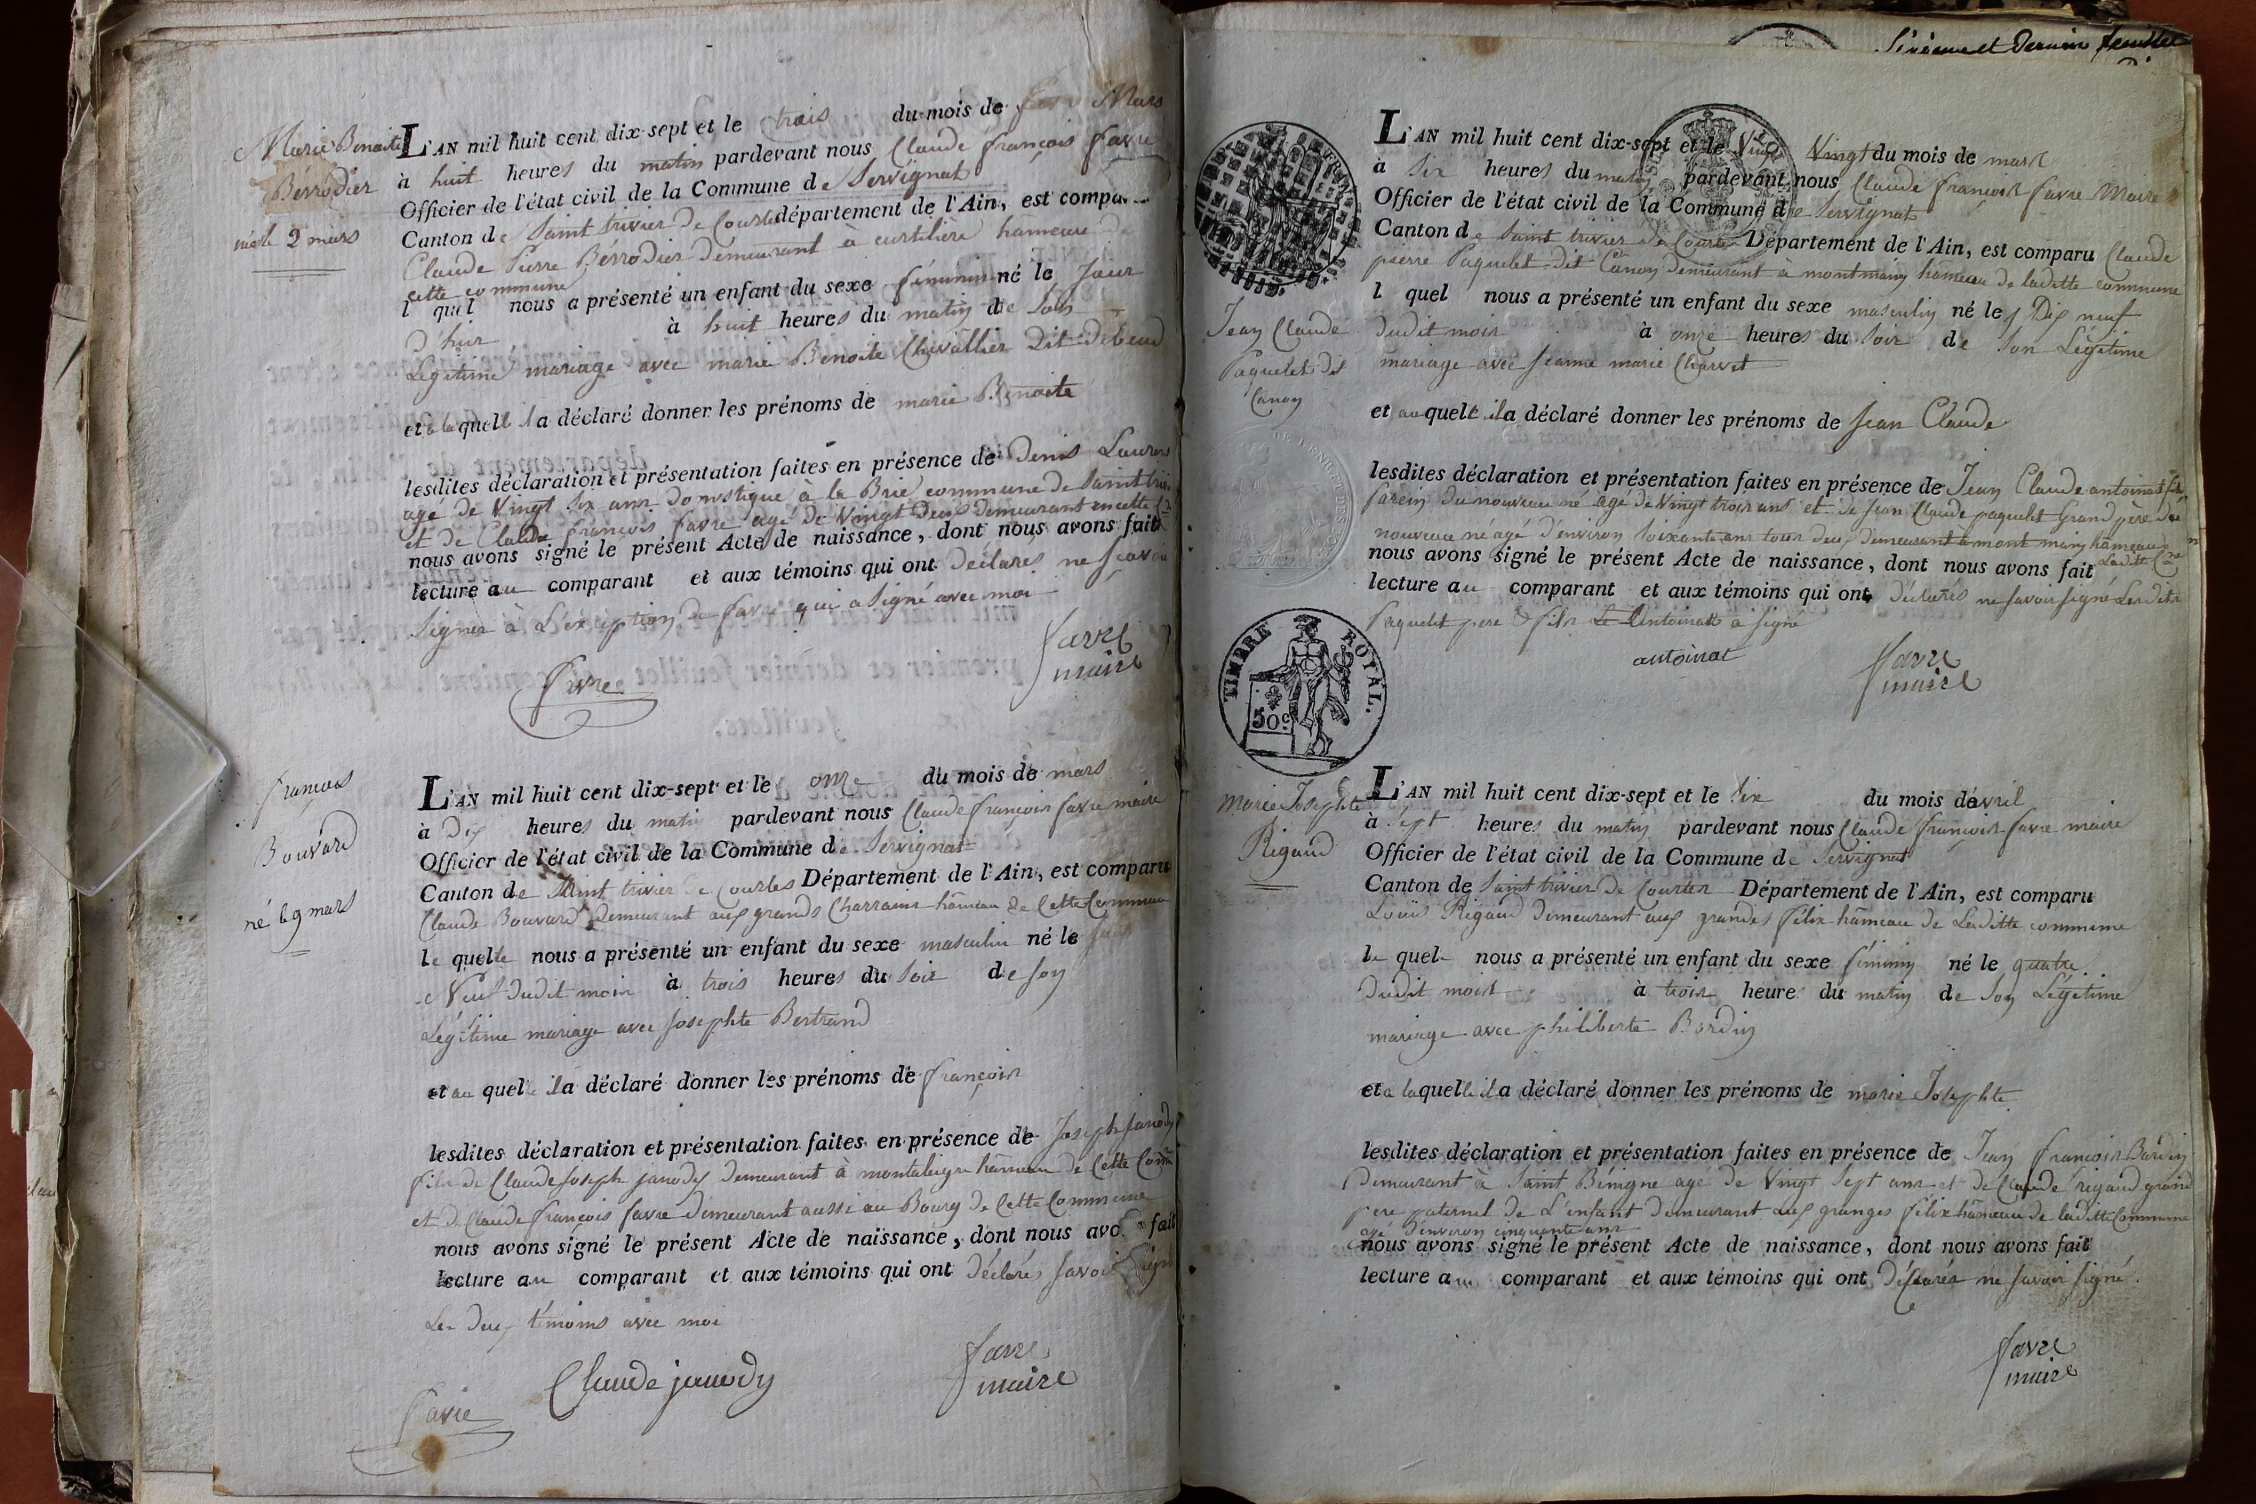 Marie Benoite
Bérrodier
née le 2 mars
L'AN mil huit cent dix-sept et le trois du mois de Mars
à huit heures du matin pardevant nous Claude françois favre
Officier de l'état civil de la Commune de Servignat
Canton de Saint trivier de Courtes département de l'Ain, est comparu
Claude Pierre Bérrodier demeurant à curtiliere hâmeau de
cette commune
lequel nous a présenté un enfant du sexe féminin né le Jour
D'hier à huit heures du matin de Son
Légitime mariage avec marie Benoite Chevallier Dit
et a laquelle il a déclaré donner les prénoms de marie Benoite
lesdites déclaration et présentation faites en présence de Denis
age de Vingt Six ans domestique à la Brie commune de Saint
et de Claude françois favre agé de Vingt Deux demeurant en cette
nous avons signé le présent Acte de naissance, dont nous avons fait
lecture au comparant et aux témoins qui ont Déclarés ne scavoir
Signer à L'éxeption de favre qui a Signé avec moi
favre
maire
favre
françois
Bouvard
né le 9 mars
L'AN mil huit cent dix-sept et le onze du mois de mars
à Dix heures du matin pardevant nous Claude françois favre maire
Officier de l'état civil de la Commune de Servignat
Canton de Saint trivier de Courtes Département de l'Ain, est comparu
Claude Bouvard demeurant aux grands Charrains hâmeau de Cette Commune
le quelle nous a présenté un enfant du sexe masculin né le
Neuf dudit mois à trois heures du Soir de Son
Légitime mariage avec Josephte Bertrand
et au quel il a déclaré donner les prénoms de françois
lesdites déclaration et présentation faites en présence de Joseph Janody
fils de Claude Joseph janody demeurant à hâmeau de Cette
et de Claude françois favre demeurant aussi au Bourg de Cette Commune
nous avons signé le présent Acte de naissance, dont nous avons fait
lecture au comparant et aux témoins qui ont Déclarés Savoir Signer
Les Deux témoins avec moi
favre
maire
Claude janody
favre
Sixième et Dernier feuillet
L'AN mil huit cent dix-sept et le Vingt du mois de mars
à Six heures du matin pardevant nous Claude françois favre Maire
Officier de l'état civil de la Commune de Servignat
Canton de Saint trivier de Courtes Département de l'Ain, est comparu Claude
pierre Paquelet dit Canon demeurant à montmain hâmeau de laditte commune
Jean Claude
Paquelet dit
Canon
lquel nous a présenté un enfant du sexe masculin né le Dix neuf
dudit mois à onze heures du Soir de Son Légitime
mariage avec jeanne marie Charvet
et auquel il a déclaré donner les prénoms de Jean Claude
lesdites déclaration et présentation faites en présence de Jean Claude antoinat
parein du nouveau né agé de Vingt trois ans et de jean Claude paquelet Grand père du
nouveau né agé d'environ Soixante ans tous deux demeurant à mont main hâmeau
Laditte
nous avons signé le présent Acte de naissance, dont nous avons fait
lecture au comparant et aux témoins qui ont déclarés ne savoir signé Les dits
Paquelet pere & fils et L'antoinat à signé
antoinat
favre
maire
TIMBRE ROYAL.
50c
Marie Josephte
Rigaud
L'AN mil huit cent dix-sept et le Six du mois d'avril
à Sept heures du matin pardevant nous Claude françois favre maire
Officier de l'état civil de la Commune de Servignat
Canton de Saint trivier de Courtes Département de l'Ain, est comparu
Louis Rigaud demeurant aux grandes félix hâmeau de Laditte commune
le quel nous a présenté un enfant du sexe féminin né le quatre
Dudit mois à trois heures du matin de Son Légitime
mariage avec philiberte Bordin
et a laquelle il a déclaré donner les prénoms de marie Josephte
lesdites déclaration et présentation faites en présence de Jean françois Bardin
Demeurant à Saint Bénigne agé de Vingt Sept ans et de Claude rigaud grand
pere paternel de L'enfant demeurant aux granges félix hâmeau de laditte Commune
agé d'environ cinquante ans
nous avons signé le présent Acte de naissance, dont nous avons fait
lecture au comparant et aux témoins qui ont Déclarés ne savoir signé.
favre
maire